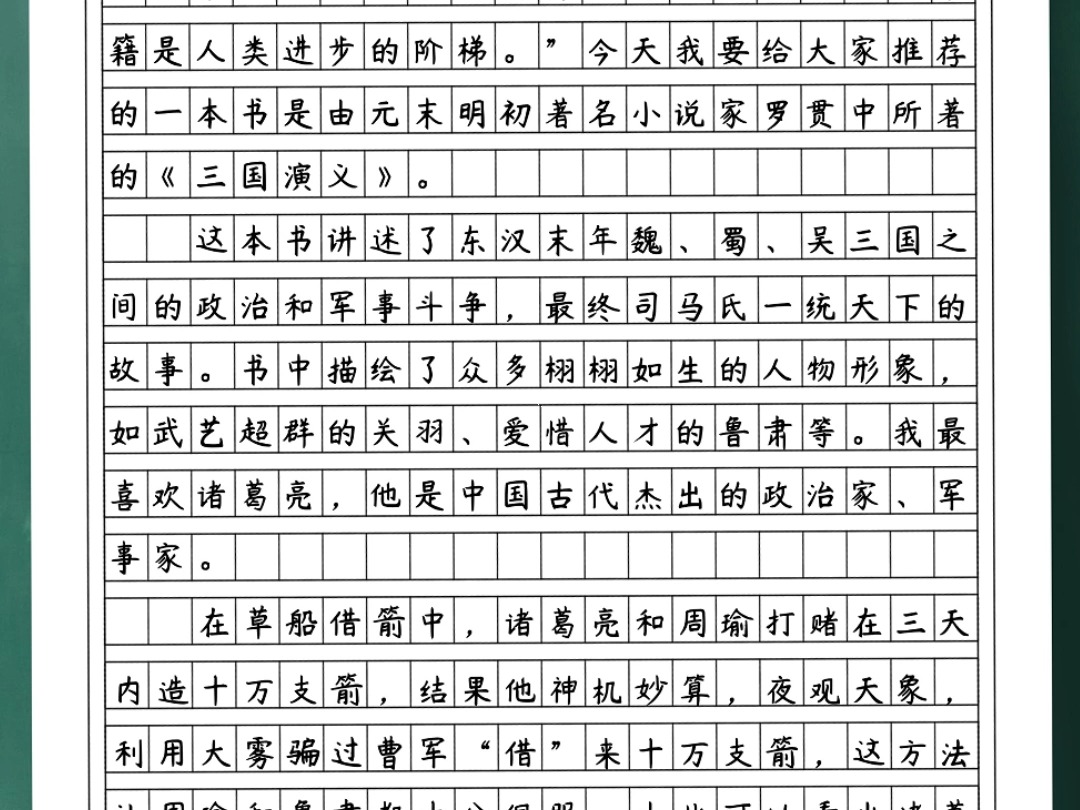 籍是人类进步的阶梯。”今天我要给大家推荐
的一本书是由元末明初著名小说家罗贯中所著
的《三国演义》。
这本书讲述了东汉末年魏、蜀、吴三国之
间的政治和军事斗争，最终司马氏一统天下的
故事。书中描绘了众多栩栩如生的人物形象，
如武艺超群的关羽、爱惜人才的鲁肃等。我最
喜欢诸葛亮，他是中国古代杰出的政治家、军
事家。
在草船借箭中，诸葛亮和周瑜打赌在三天
内造十万支箭，结果他神机妙算，夜观天象，
利用大雾骗过曹军“借”来十万支箭，这方法